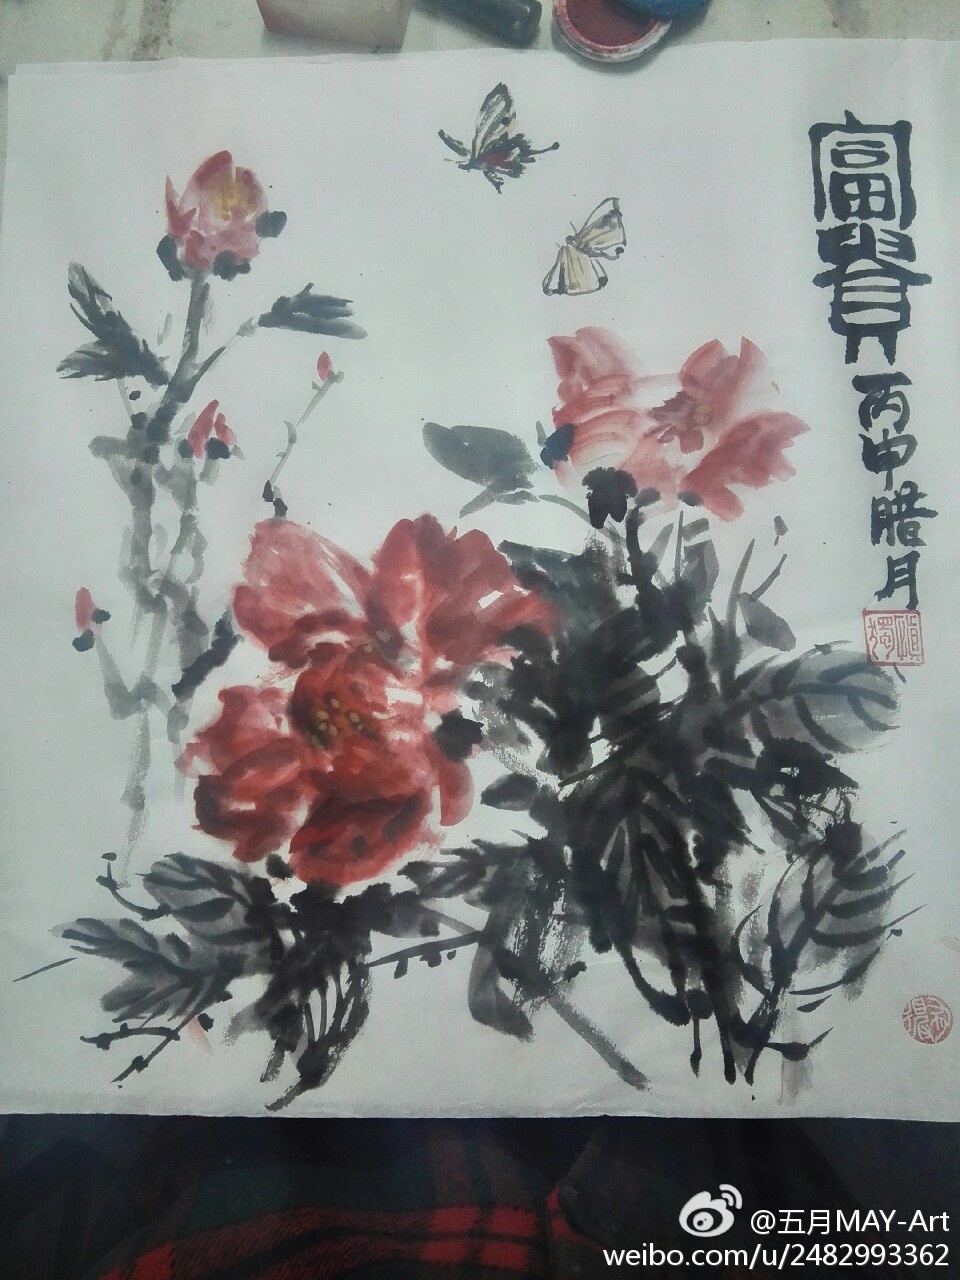 富貴
丙申腊月
@五月MAY-Art
weibo.com/u/2482993362